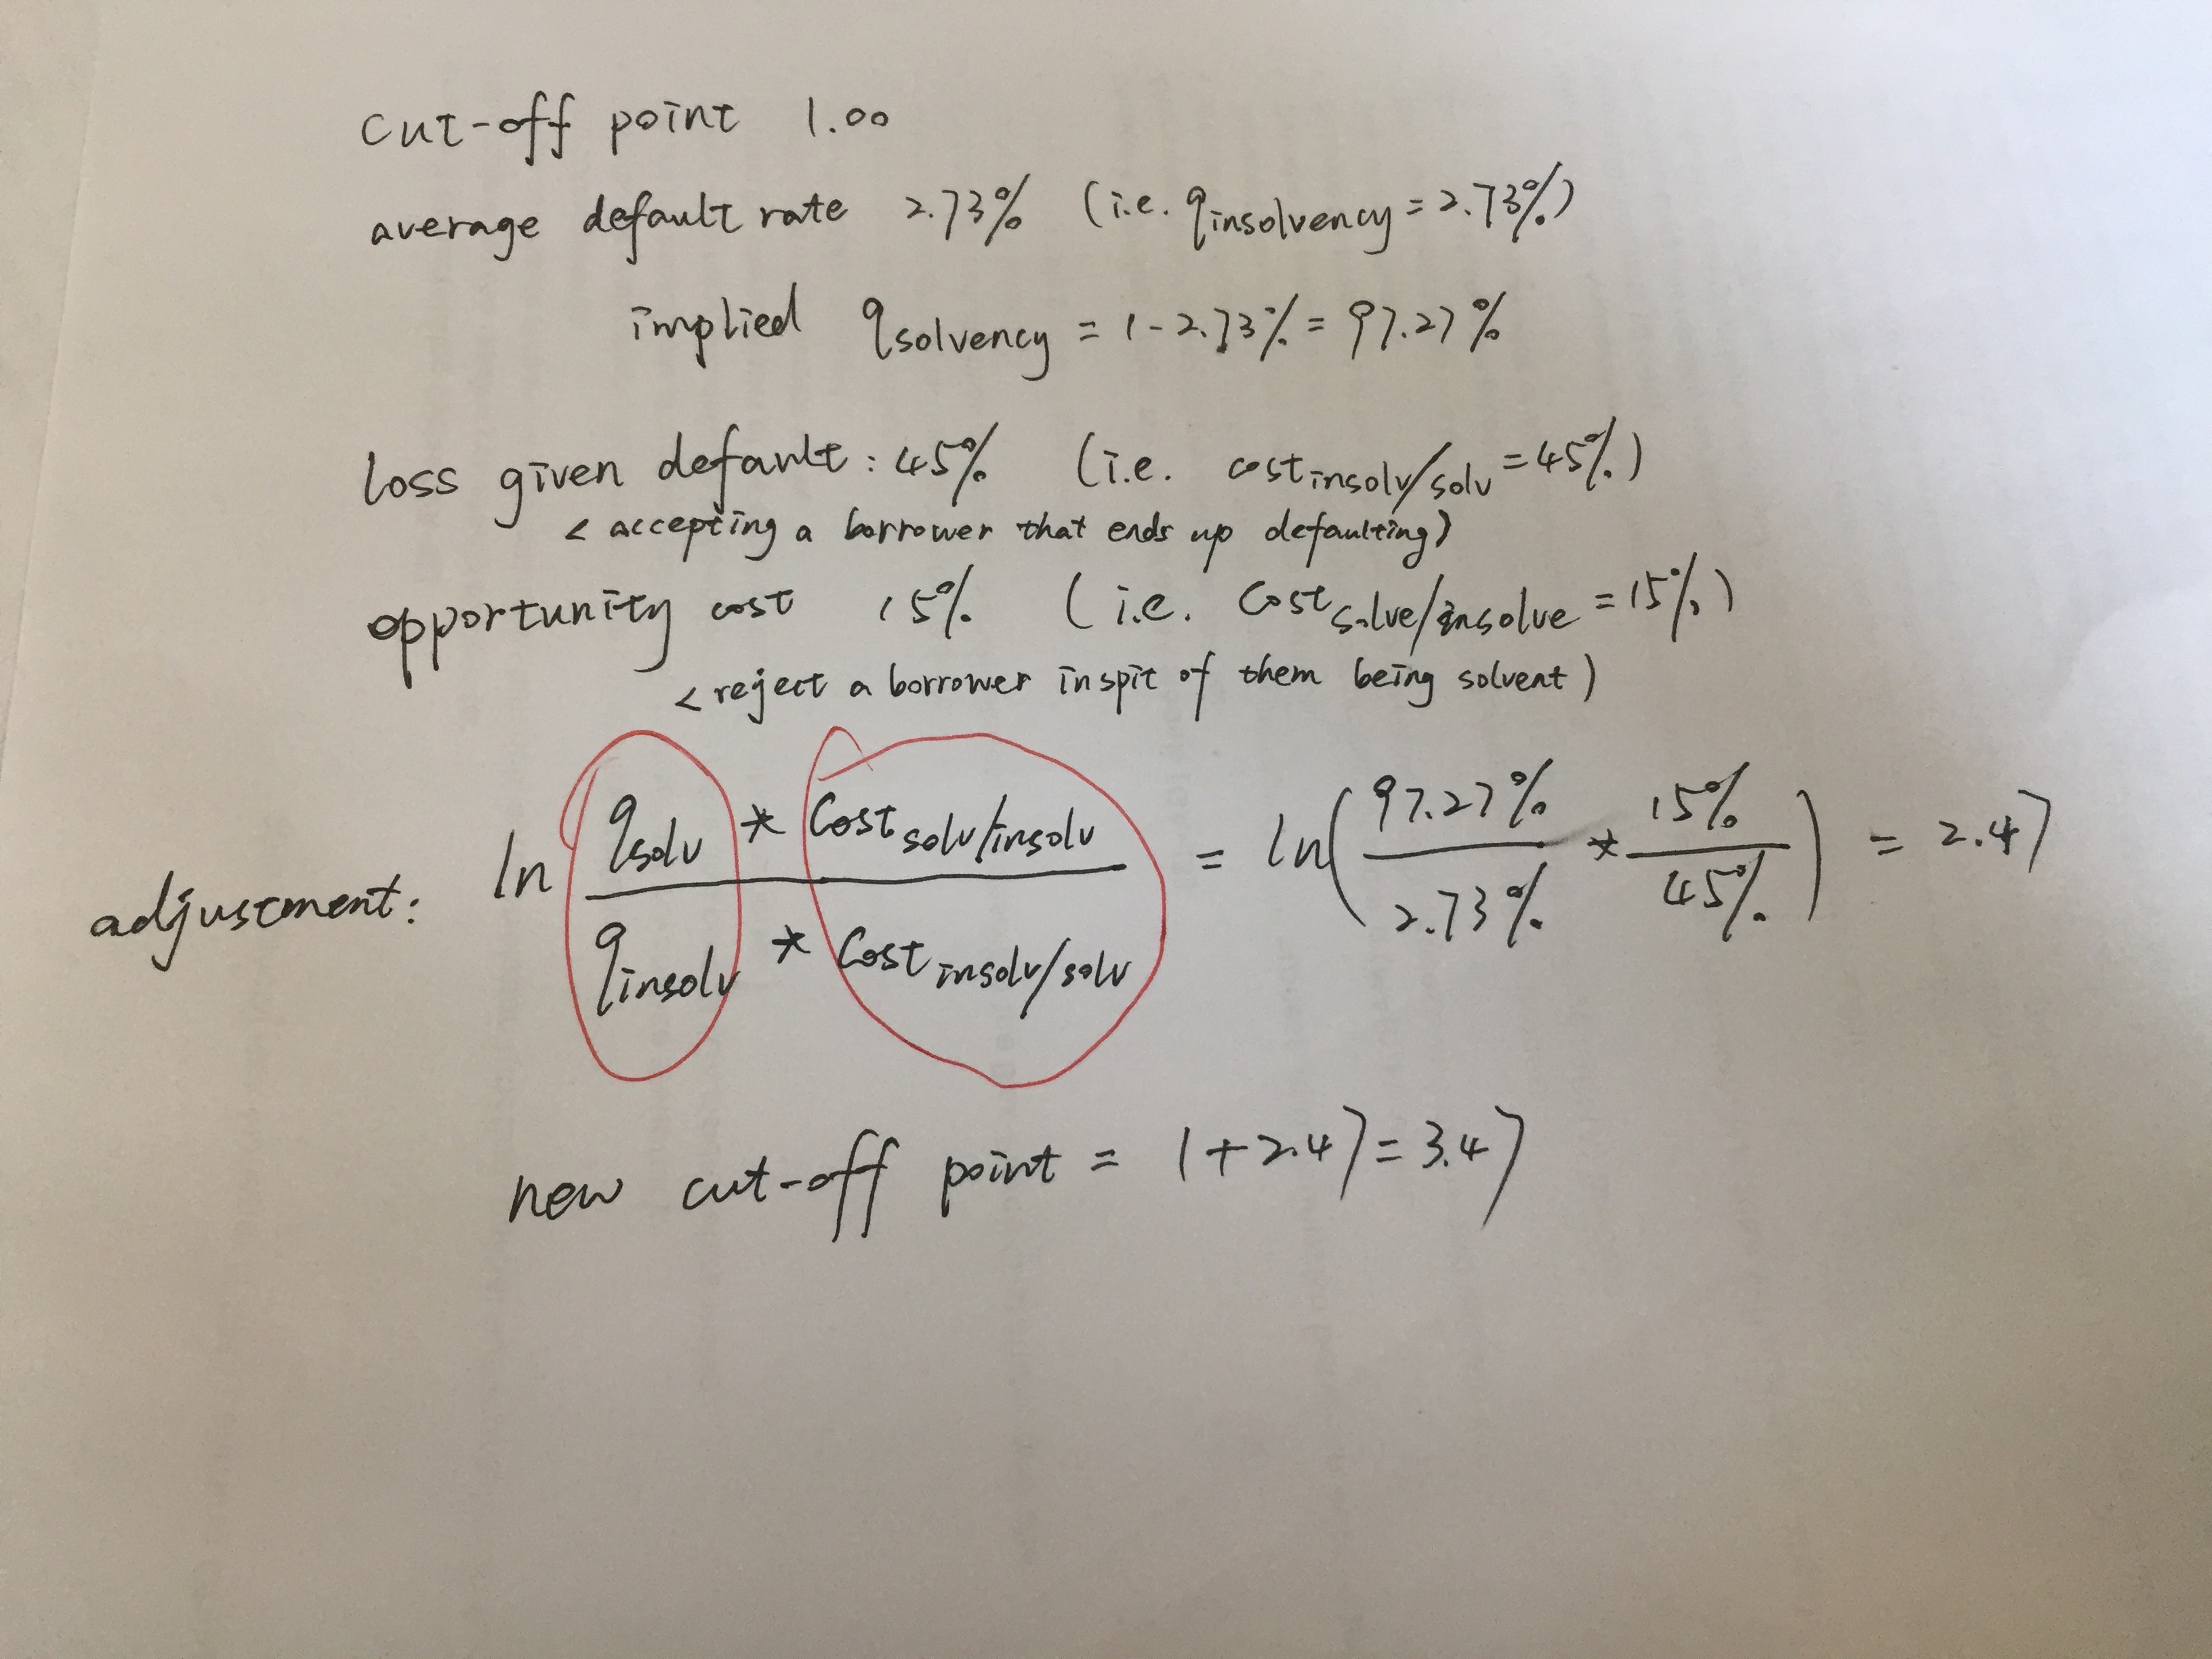 cut-off point 1.00
average default rate 2.73% (i.e. qinsolvency = 2.73%)
implied qsolvency = 1 - 2.73% = 97.27%
loss given default : 45% (i.e. costinsolv/solv = 45%)
< accepting a borrower that ends up defaulting)
opportunity cost 15% (i.e. Costsolve/insolve = 15%)
< reject a borrower inspit of them being solvent)
adjustment: ln qsolv * Costsolv/insolv / qinsolv * Costinsolv/solv = ln(97.27% / 2.73% * 15% / 45%) = 2.47
new cut-off point = 1 + 2.47 = 3.47